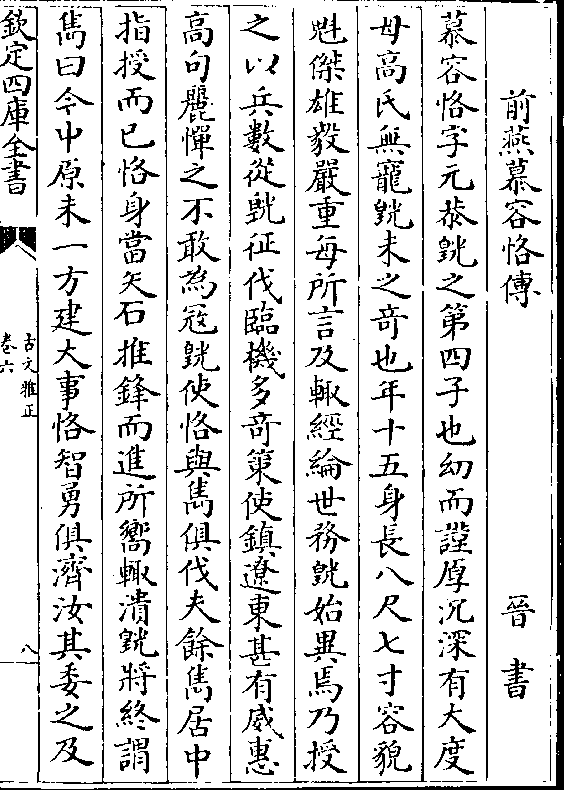 前燕慕容恪傳 晉書
慕容恪字元恭皝之第四子也幼而謹厚沉深有大度
母高氏無寵皝未之奇也年十五身長八尺七寸容貌
魁傑雄毅嚴重每所言及輒經綸世務皝始異焉乃授
之以兵數從皝征伐臨機多奇策使鎮遼東甚有威惠
高句麗憚之不敢為冦皝使恪與雋俱伐夫餘雋居中
指授而已恪身當矢石推鋒而進所嚮輒潰皝將終謂
雋曰今中原未一方建大事恪智勇俱濟汝其委之及
欽定四庫全書
古文雅正
卷六
八